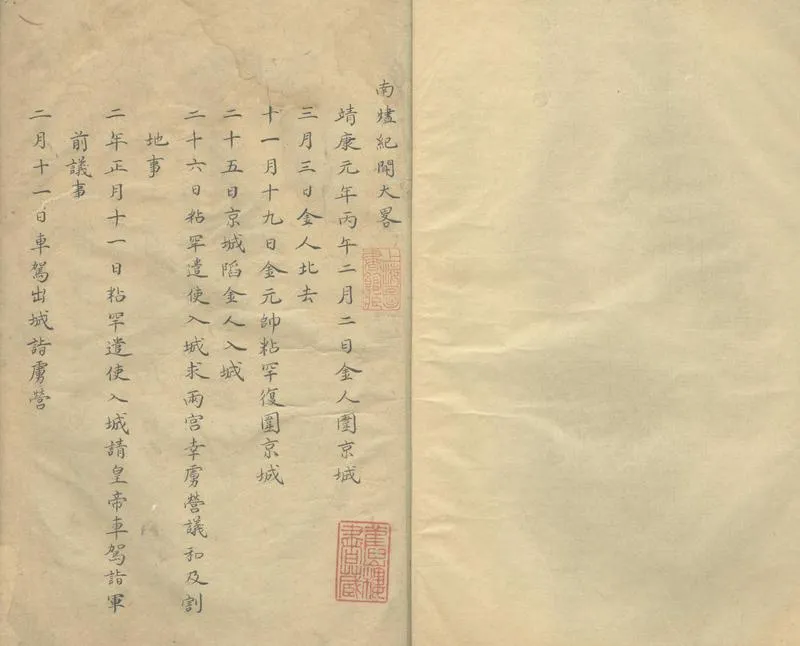 南燼紀聞大畧
靖康元年丙午二月二日金人圍京城
三月三日金人北去
十一月十九日金元帥粘罕復圍京城
二十五日京城陷金人入城
二十六日粘罕遣使入城求兩宮幸虜營議和及割
地事
二年正月十一日粘罕遣使入城請皇帝車駕詣軍
前議事
二月十一日車駕出城詣虜營